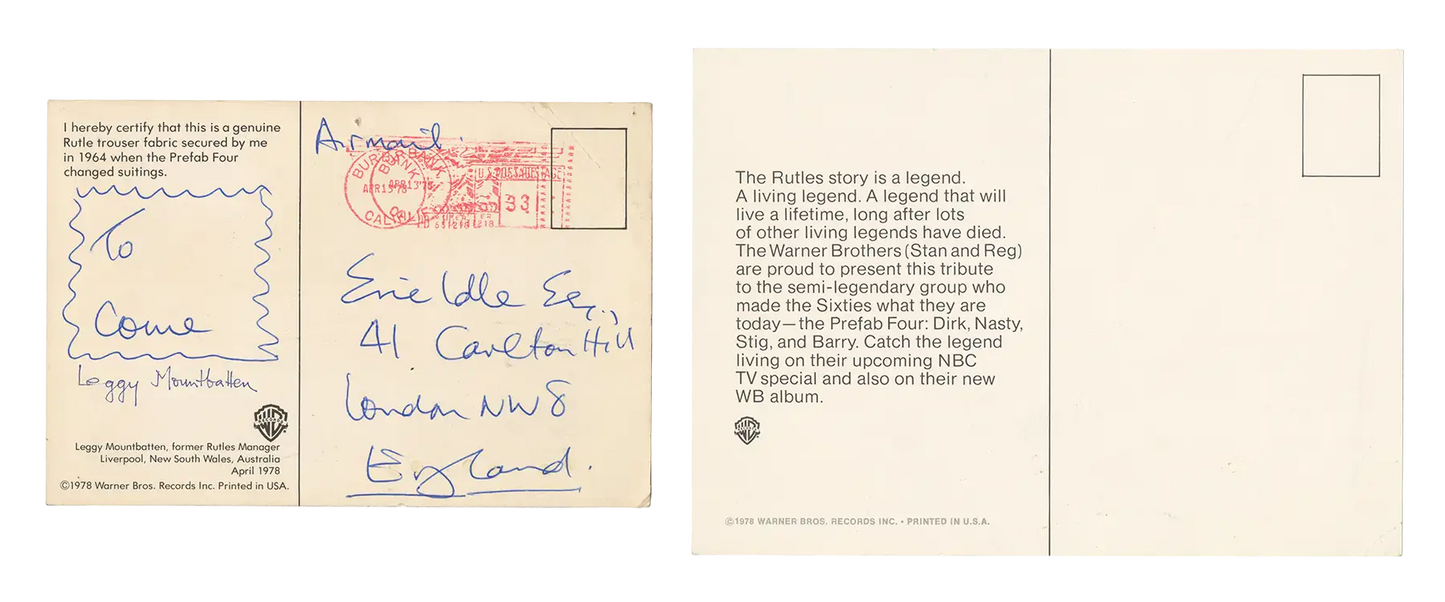 I hereby certify that this is a genuine
Rutle trouser fabric secured by me
in 1964 when the Prefab Four
changed suitings.
To
Come
Leggy Mountbatten
Leggy Mountbatten, former Rutles Manager
Liverpool, New South Wales, Australia
April 1978
©1978 Warner Bros. Records Inc. Printed in USA.
Airmail.
BURBANK
APR 13 '78
CALIF
U.S. POSTAGE
33
Eric Idle Esq.,
41 Carlton Hill
London NW8
England.
The Rutles story is a legend.
A living legend. A legend that will
live a lifetime, long after lots
of other living legends have died.
The Warner Brothers (Stan and Reg)
are proud to present this tribute
to the semi-legendary group who
made the Sixties what they are
today—the Prefab Four: Dirk, Nasty,
Stig, and Barry. Catch the legend
living on their upcoming NBC
TV special and also on their new
WB album.
©1978 WARNER BROS. RECORDS INC. • PRINTED IN U.S.A.